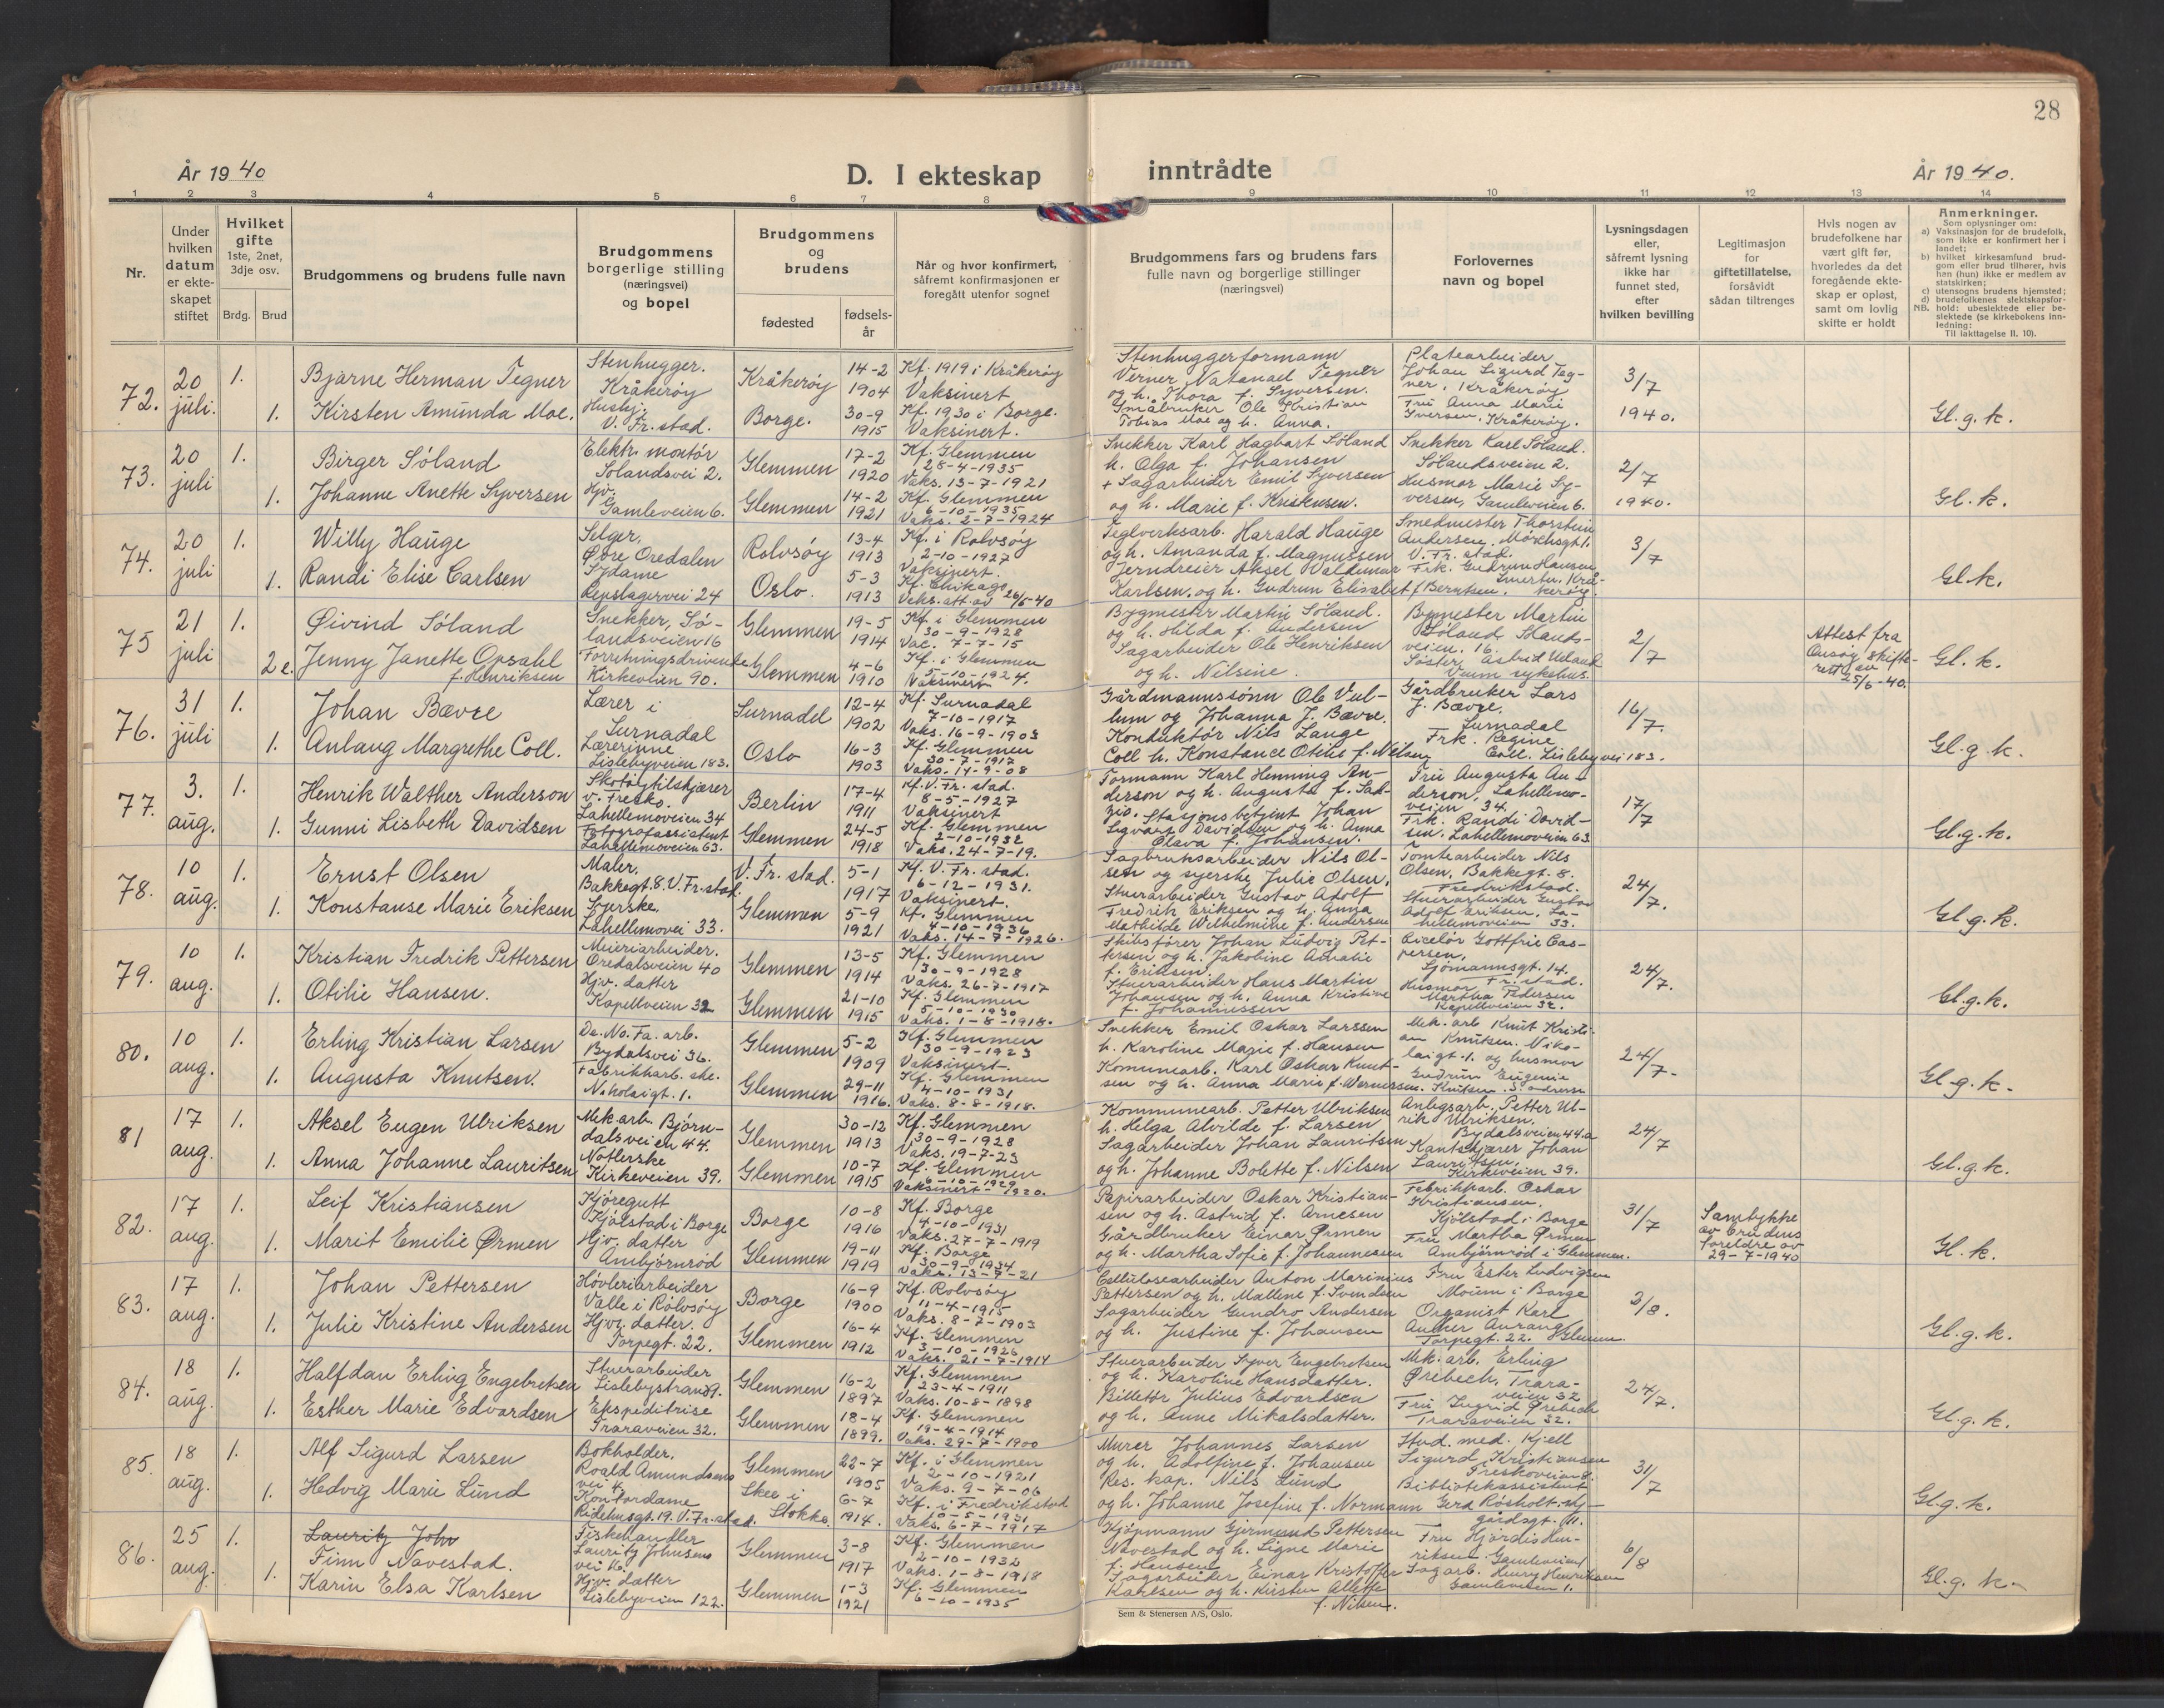 28
År 1940
D. I ekteskap inntrådte
År 1940.
1 2 3 4 5 6 7 8 9 10 11 12 13 14
Nr.
Under hvilken datum er ekteskapet stiftet
Hvilket gifte 1ste, 2net, 3dje osv.
Brdg. Brud
Brudgommens og brudens fulle navn
Brudgommens borgerlige stilling (næringsvei) og bopel
Brudgommens og brudens
fødested
fødselsår
Når og hvor konfirmert, såfremt konfirmasjonen er foregått utenfor sognet
Brudgommens fars og brudens fars fulle navn og borgerlige stillinger (næringsvei)
Forlovernes navn og bopel
Lysningsdagen eller, såfremt lysning ikke har funnet sted, efter hvilken bevilling
Legitimasjon for giftetillatelse, forsåvidt sådan tiltrenges
Hvis nogen av brudefolkene har vært gift før, hvorledes da det foregående ekteskap er opløst, samt om lovlig skifte er holdt
Anmerkninger.
Som oplysninger om:
a) Vaksinasjon for de brudefolk, som ikke er konfirmert her i landet;
b) hvilket kirkesamfund brudgom eller brud tilhører, hvis han (hun) ikke er medlem av statskirken;
c) utensogns brudens hjemsted;
d) brudefolkenes slektskapsforhold: ubeslektede eller beslektede (se kirkebokens innledning:
NB. Til iakttagelse II. 10).
72. 20 juli. 1. Bjarne Herman Tegner
Stenhugger. Kråkerøy
Kråkerøy 14-2 1904
Kf. 1919 i Kråkerøy Vaksinert
1. Kirsten Amunda Moe.
Husbj. V. Fr.stad.
Borge. 30-9 1915
Kf. 1930 i Borge. Vaksinert.
Stenhuggerformann
Verner Natanael Tegner
og h. Thora f. Syversen.
Småbruker Ole Kristian
Tobias Moe og h. Anna.
Platearbeider
Johan Sigurd Tegner, Kråkerøy
Fru Anna Marie
Iversen. Kråkerøy.
3/7 1940.
Gl.g.k.
73. 20 juli 1. Birger Söland
Elektr. montör Sölandsvei 2.
Glemmen 17-2 1920
Kf. Glemmen 28-4-1935
Vaks. 13-7-1921
1. Johanne Anette Syversen
Hjv. Gamleveien 6.
Glemmen 14-2 1921
Kf. Glemmen 6-10-1935
Vaks. 2-7-1924
Snekker Karl Hagbart Söland
h. Olga f. Johansen
+ Sagarbeider Emil Syversen
og h. Marie f. Kristensen.
Snekker Karl Söland.
Sölandsveien 2.
Husmor Marie Syversen, Gamleveien 6.
2/7 1940.
Gl.k.
74. 20 juli 1. Willy Hauge
Selger, Øvre Oredalen
Rolvsøy 13-4 1913
Kf. i Rolvsøy 2-10-1927
Vaksinert.
1. Randi Elise Carlsen
Sydame Repslagervei 24
Oslo. 5-3 1913
Kf. Chikago
Veks.att.av 26/5-40
Teglverksarb. Harald Hauge
og h. Amanda f. Magnussen
Jerndreier Aksel Valdemar
Karlsen, og h. Gudrun Elisabet f. Berntsen.
Smedmester Thorstein
Andersen.
V. Fr. stad.
Frk. Gudrun Hansen
3/7
Gl.k.
75 21 juli 1. Øivind Söland
Snekker, Sölandsveien 16
Glemmen 19-5 1914
Kf. i Glemmen 30-9-1928
Vac. 7-7-15
2e. Jenny Janette Opsahl f. Henriksen
Forretningsdrivende Kirkeveien 90.
Glemmen 4-6 1910
Kf. i Glemmen 5-10-1924.
Vaksinert
Bygmester Martin Söland.
og h. Hilda f. Andersen
Sagarbeider Ole Henriksen
og h. Nilsine.
Bygmester Martin
Söland Sölandsveien. 16.
Söster Astrid
Veum sykehus.
2/7
Attest fra Onsøy skifterett av 25/6-40.
Gl. k.
76. 31 juli 1. Johan Bævre
Lærer i Surnadal
Surnadal 12-4 1902
Kf. Surnadal 7-10-1917
Vaks. 16-9-1903
1. Anlaug Margrethe Coll.
Lærerinne Lislebyveien 183.
Oslo 16-3 1903
Kf. Glemmen 30-7-1917
Vaks. 14-9-08
Gårdmannssönn Ole Vullum og Johanna J. Bævre.
Konduktör Nils Lange
Coll h. Konstance Otilie f. Nilsen
Gårdbruker Lars
J. Bævre.
Surnadal
Frk. Regine
Coll. Lislebyvei 183.
16/7.
Gl.g.k.
77. 3. aug. 1. Henrik Walther Anderson
Skotøytilskjærer v. Fresko. Lahellemoveien 34
Berlin 17-4 1911
Kf. V. Fr. stad. 8-5-1927
Vaksinert
1. Gunni Lisbeth Davidsen
Fotografassistent Lahellemoveien 63.
Glemmen 24-5 1918
Kf. Glemmen 2-10-1932
Vaks. 24-7-19.
Formann Karl Henning Anderson og h. Augusta f.
Stasjonsbetjent Johan
Sigvart Davidsen og h. Anna
Olava f. Johansen.
Fru Augusta Anderson, Lahellemoveien 34.
Frk. Randi Davidsen. Lahellemoveien 63
17/7
Gl.g.k.
78. 10 aug. 1. Ernst Olsen
Maler, Bakkegt. 8. V. Fr.stad.
V. Fr. stad. 5-1 1917
Kf. V. Fr. stad. 6-12-1931.
Vaksinert.
1. Konstanse Marie Eriksen
Syerske, Lahellemovei 33.
Glemmen 5-9 1921
Kf. Glemmen 4-10-1936
Vaks. 14-7-1926.
Sagbruksarbeider Nils Olsen og syerske Julie Olsen.
Stuerarbeider Gustav Adolf
Fredrik Eriksen og h. Anna
Mathilde Wilhelmine f. Andersen
Tomtearbeider Nils
Olsen, Bakkegt. 8.
Fredrikstad.
Stuerarbeider Gustav
Adolf Eriksen. Lahellemoveien 33.
24/7.
Gl.g.k.
79. 10 aug. 1. Kristian Fredrik Pettersen
Meieriarbeider. Oredalsveien 40
Glemmen 13-5 1914
Kf. Glemmen 30-9-1928
Vaks. 26-7-1917
1. Otilie Hansen.
Hjv. datter Kapellveien 32
Glemmen 21-10 1915
Kf. Glemmen 5-10-1930
Vaks. 1-8-1918.
Skibsfører Johan Ludvig Pettersen og h. Jakobine Amalie
f. Eriksen.
Stuerarbeider Hans Martin
Johansen og h. Anna Kristine
f. Johannessen
Ciselör Gottfrie Caspersen,
Sjömannsgt. 14.
Fr. stad.
Husmor Martha Pedersen
Kapellveien 32.
24/7.
Gl.g.k.
80. 10 aug. 1. Erling Kristian Larsen
De. No. Fa. arb. Bydalsvei 36.
Glemmen 5-2 1909
Kf. Glemmen 30-9-1923
Vaksinert.
1. Augusta Knutsen.
Fabrikkarb. ske. Nikolaigt. 1.
Glemmen 29-11 1916.
Kf. Glemmen 4-10-1931
Vaks. 8-8-1918.
Snekker Emil Oskar Larssen
h. Karoline Marie f. Hansen
Komunearb. Karl Oskar Knutsen og h. Anna Marie f. Wernersen.
Mek. arb Knut Kristian Knutsen. Nikolaigt. 1. og husmor
Gudrun Eugenie
Knutsen.
24/7-
Gl.g.k.
81 17 aug. 1. Aksel Eugen Ulriksen
Mek.arb. Bjørndalsveien 44.
Glemmen 30-12 1913
Kf. Glemmen 30-9-1928
Vaks. 19-7-23
1. Anna Johanne Lauritsen
Notlerske Kirkeveien 39.
Glemmen 10-7 1915
Kf. Glemmen 6-10-1929
Vaksinert 1920.
Kommunearb. Petter Ulriksen
h. Helga Alvilde f. Larsen
Sagarbeider Johan Lauritsen
og h. Johanne Bolette f. Nilsen
Anlegsarb. Petter Ulrik Ulriksen.
Bydalsveien 44.a
Kantskjærer Johan
Lauritsen.
Kirkeveien 39.
24/7
Gl.g.k.
82. 17 aug. 1. Leif Kristiansen
Kjöregutt Kjölstad i Borge
Borge 10-8 1916
Kf. Borge 4-10-1931
Vaks. 27-7-1919
1. Marit Emilie Ørmen
Hjv. datter Ambjörnröd
Glemmen 19-11 1919
Kf. Borge 30-9-1934
Vaks. 13-7-21
Papirarbeider Oskar Kristiansen og h. Astrid f. Arnesen
Gårdbruker Einar Ørmen
og h. Martha Sofie f. Johannesen
Fabrikkarb. Oskar
Kristiansen.
Kjölstad i Borge
Fru Martha Ørmen
Ambjörnröd i Glemmen.
31/7
Samtykke av brudens foreldre av 29-7-1940
Gl.k.
83. 17 aug. 1. Johan Pettersen
Hövleriarbeider Valle i Rolvsøy
Borge 16-9 1900
Kf. Rolvsøy 11-4-1915
Vaks. 8-7-1903
1. Julie Kristine Andersen
Hjv. datter. Torpegt. 22.
Glemmen 16-4 1912
Kf. Glemmen 3-10-1926
Vaks. 21-7-1914
Cellulosearbeider Anton Marinius
Pettersen og h. Mallene f. Svendsen
Sagarbeider Gundro Andersen
og h. Justine f. Johansen
Fru Ester Ludvigsen
Moum i Borge
Organist Karl
Torpegt. 22. Glemmen.
3/8.
Gl.g.k.
84. 18 aug. 1. Halfdan Erling Engebretsen
Stuerarbeider Lislebystrand 9.
Glemmen 16-2 1897
Kf. Glemmen 23-4-1911
Vaks. 10-8-1898
1. Esther Marie Edvardsen
Ekspeditrise Traraveien 32.
Glemmen 18-4 1899.
Kf. Glemmen 19-4-1914
Vaks. 29-7-1900
Stuerarbeider Syver Engebretsen
og h. Karoline Hansdatter.
Billettör Julius Edvardsen
og h. Anne Mikalsdatter.
Mek. arb. Erling
Ørebech, Traraveien 32
Fru Ingrid Ørebech
Traraveien 32.
24/7.
Gl.g.k.
85. 18 aug. 1. Alf Sigurd Larsen
Bokholder. Roald Amundsens vei 4.
Glemmen 22-7 1905
Kf. i Glemmen 2-10-1921
Vaks. 9-7-06
1. Hedvig Marie Lund
Kontordame Ridehusgt. 19. V. Fr.stad.
Skee i Stokke. 6-7 1914.
Kf. i Fredrikstad 10-5-1931
Vaks. 6-7-1917
Murer Johannes Larsen
og h. Adolfine f. Johansen
Res. kap. Nils Lund
og h. Johanne Josefine f. Normann
Stud. med. Kjell
Sigurd Kristiansen
Freskoveien 8.
Bibliotekassistent
Gerd Røsholt.
31/7
Gl.g.k.
86. 25 aug. 1. Lauritz John
Finn Navestad.
Fiskehandler Lauritz Johnsens vei 16.
Glemmen 3-8 1917
Kf. Glemmen 2-10-1932
Vaks. 1-8-1918
1. Karin Elsa Karlsen
Hjv. datter Lislebyveien 122.
Glemmen 1-3 1921
Kf. Glemmen 6-10-1935
Kjöpmann Gjermund Pettersen
Navestad og h. Signe Marie
f. Hansen
Sagarbeider Einar Kristoffer
Karlsen og h. Kirsten Alette
f. Nilsen.
Fru Hjördis Henriksen. Gamleveien 1
Sagarb. Henry Henriksen
Gamleveien 1.
6/8
Gl.g.k.
Sem & Stenersen A/S, Oslo.